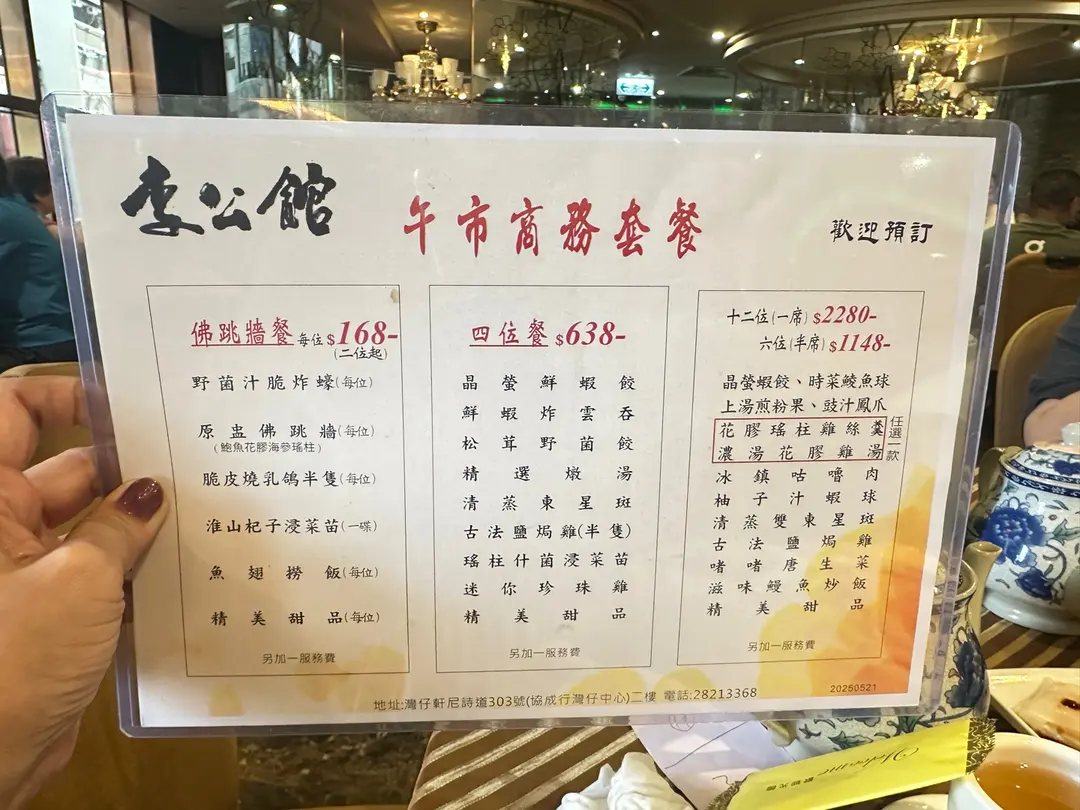 李公館
午市商務套餐
歡迎預訂
佛跳牆餐 每位$168-
(二位起)
野菌汁脆炸蠔(每位)
原盅佛跳牆(每位)
(鮑魚花膠海參瑤柱)
脆皮燒乳鴿半隻(每位)
淮山杞子浸菜苗(一碟)
魚翅撈飯(每位)
精美甜品(每位)
另加一服務費
四位餐 $638-
晶瑩鮮蝦餃
鮮蝦炸雲吞
松茸野菌餃
精選燉湯
清蒸東星斑
古法鹽焗雞(半隻)
瑤柱什菌浸菜苗
迷你珍珠雞
精美甜品
另加一服務費
十二位(一席) $2280-
六位(半席) $1148-
晶瑩蝦餃、時菜鯪魚球
上湯煎粉果、豉汁鳳爪
花膠瑤柱雞絲羹
濃湯花膠雞湯
任選一款
冰鎮咕嚕肉
柚子汁蝦球
清蒸雙東星斑
古法鹽焗雞
啫啫唐生菜
滋味鰻魚炒飯
精美甜品
另加一服務費
20250521
地址:灣仔軒尼詩道303號(協成行灣仔中心)二樓 電話:28213368
Welcome